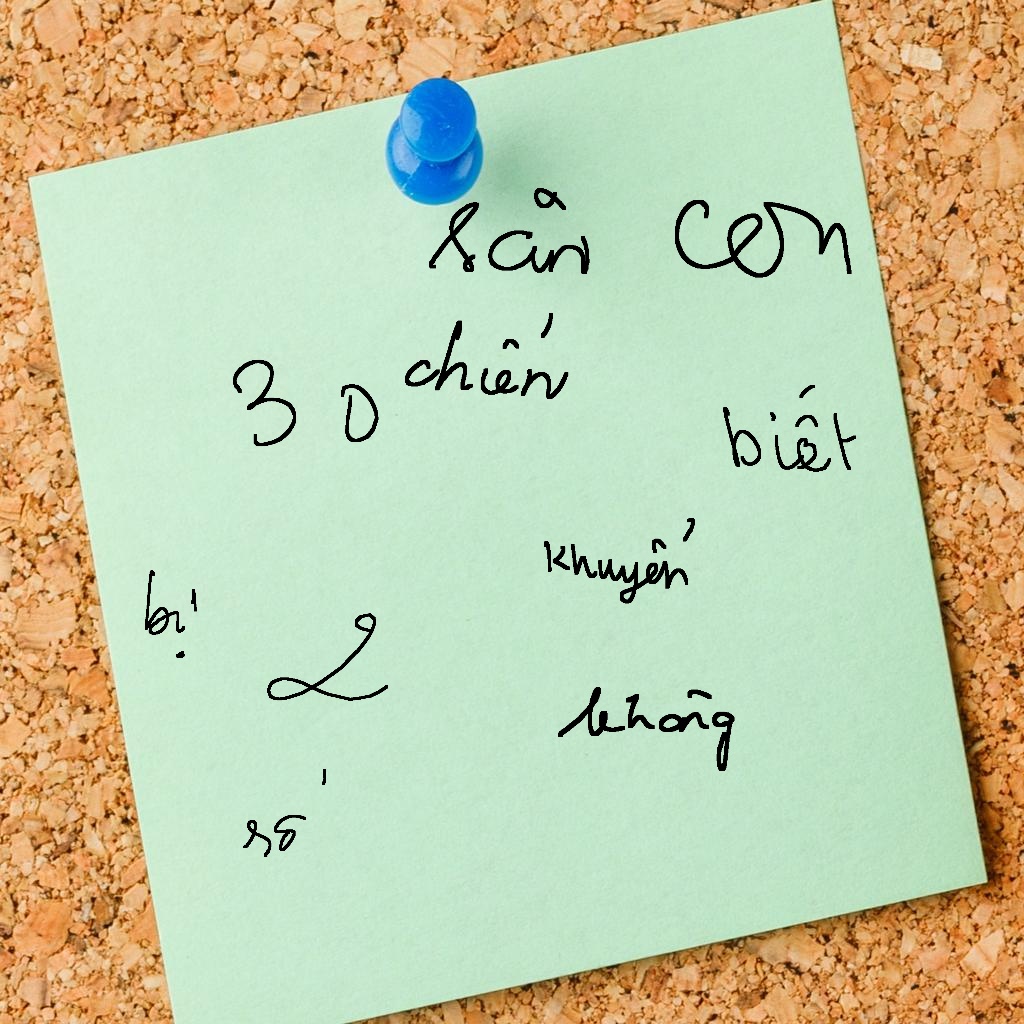 sản con
30 chiến
biết
khuyến
bị
2
không
số